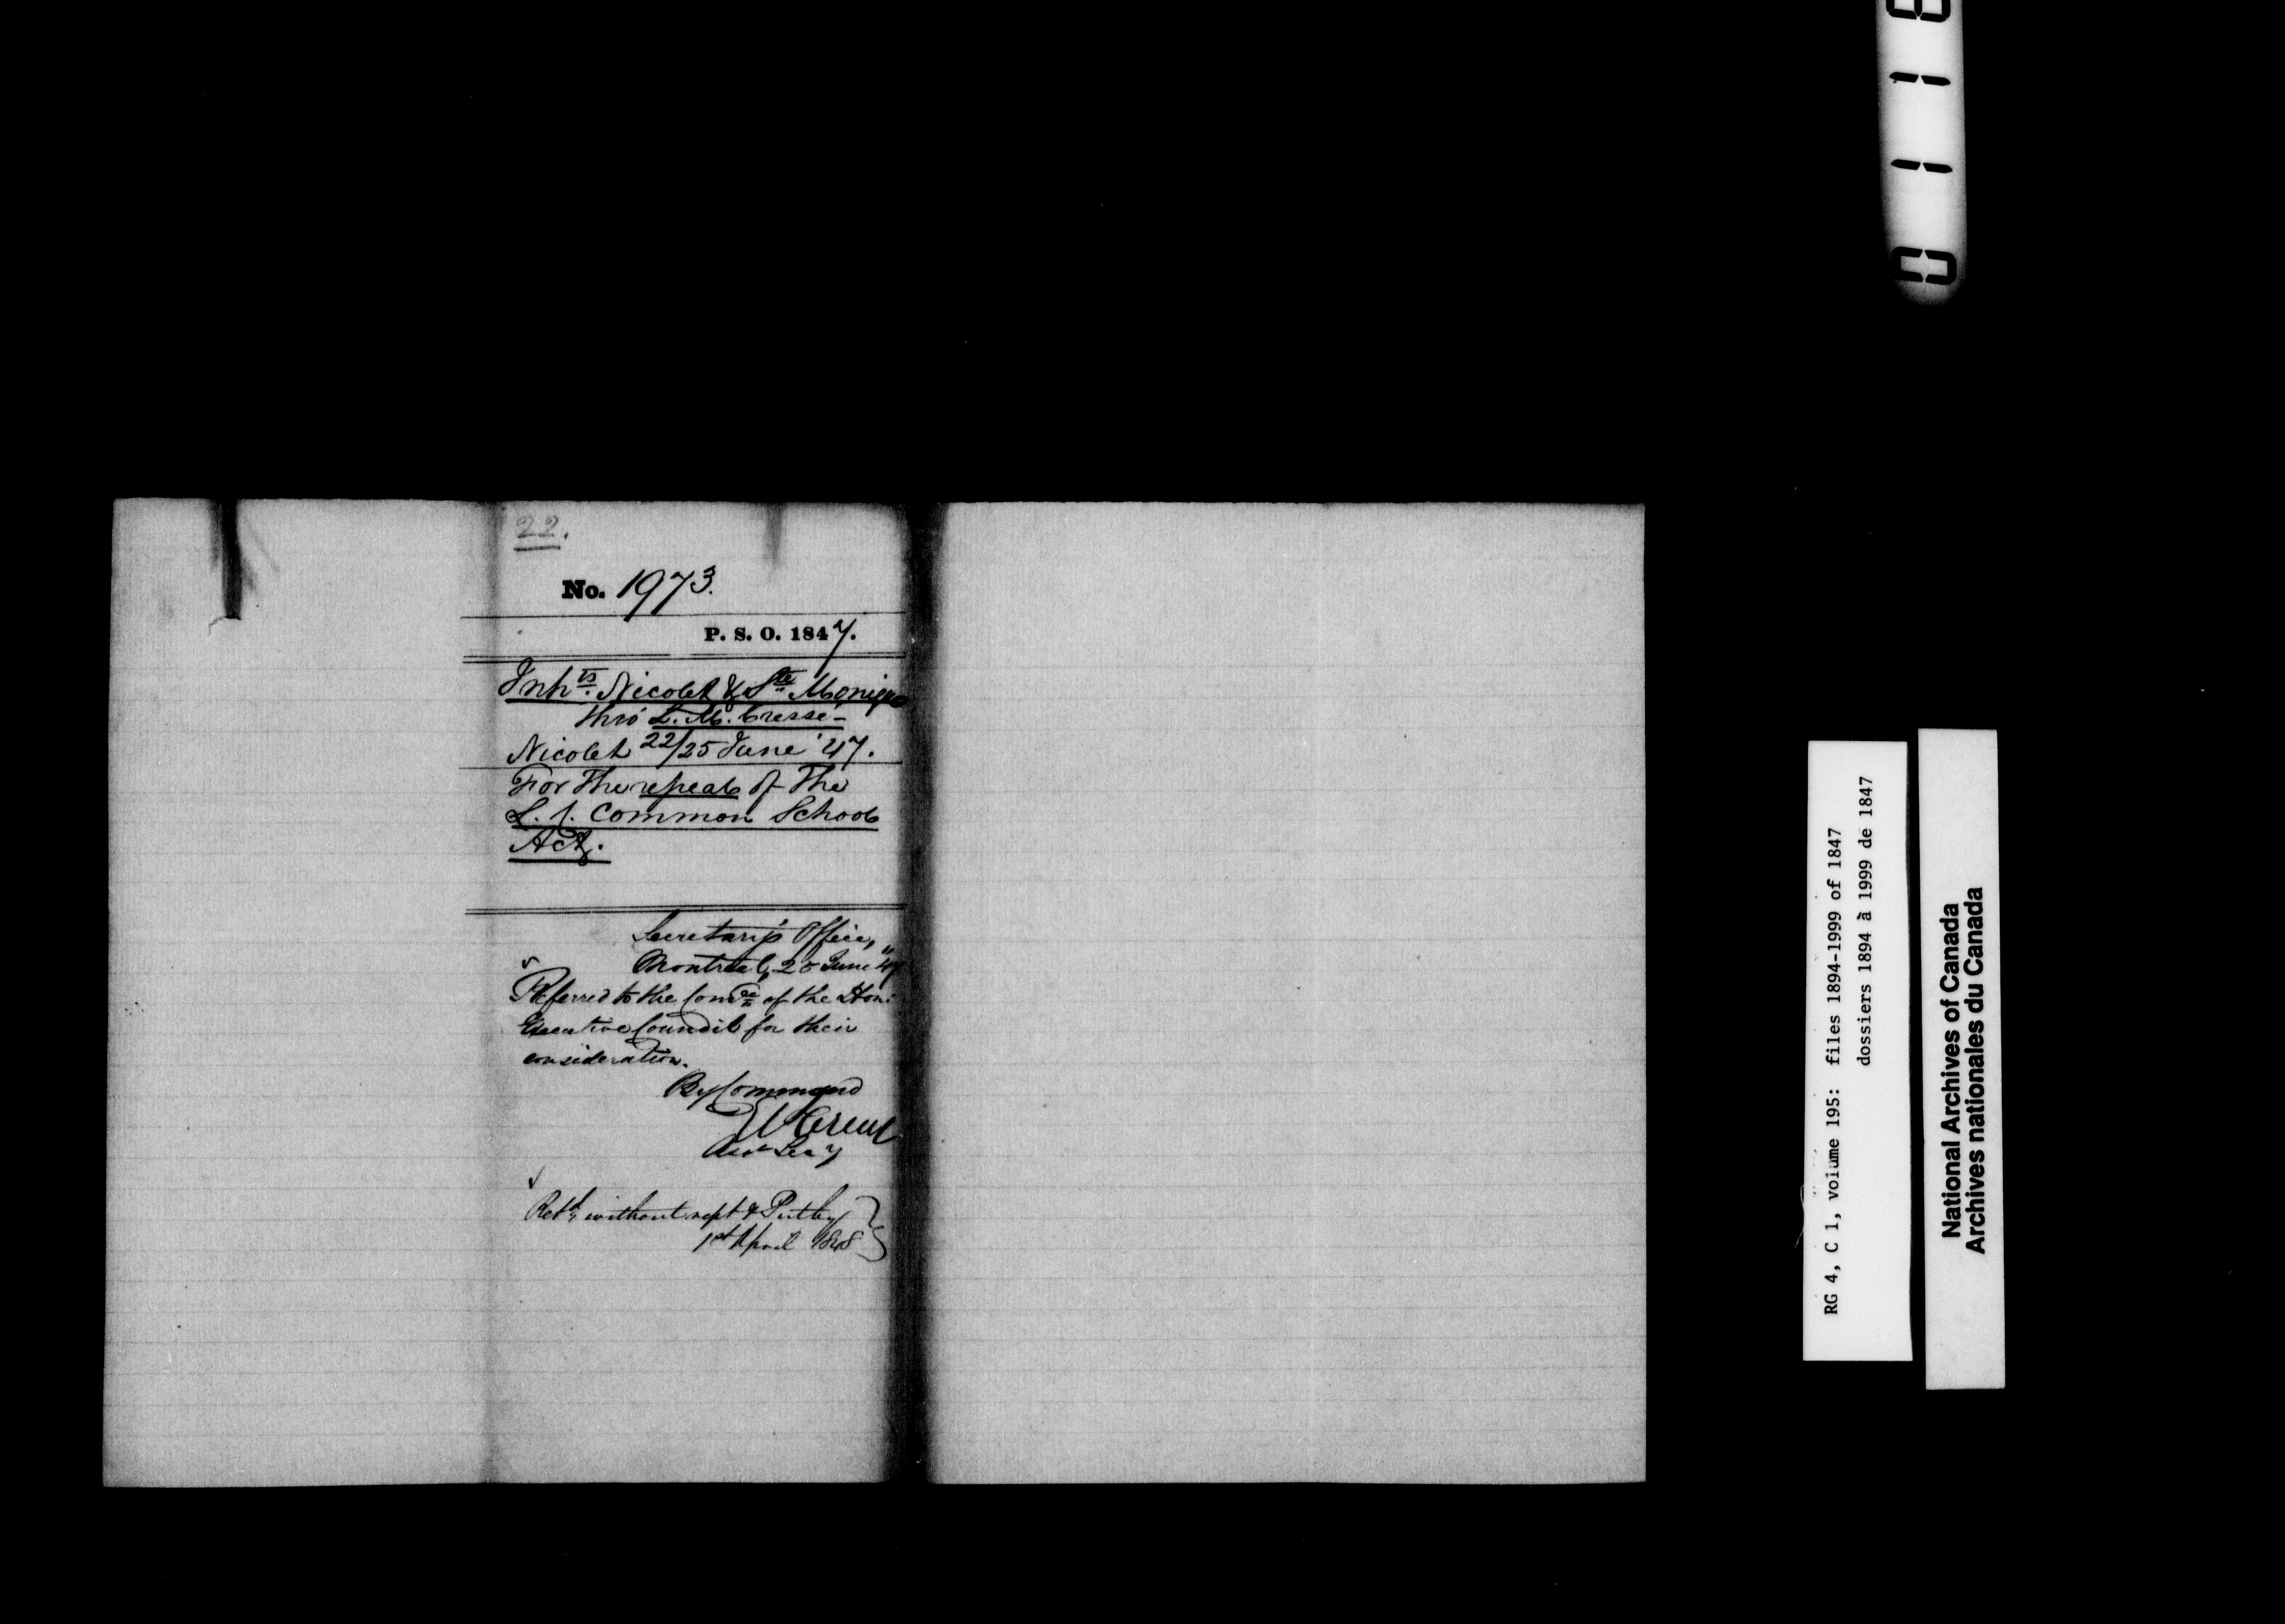 22.
No. 1973.
P. S. O. 1847.
Inhts. Nicolet & Ste Monique
thro' L. M. Cresse-
Nicolet 22/25 June '47.
For the repeal of the
L. C. Common School
Act.
Secretary's Office,
Montreal, 28 June "47
Referred to the Comee of the Hon:
Executive Council for their
consideration.
By Command
E Parent
Asst Secy
Retd without rept
1st April 1848
RG 4, C 1, volume 195: files 1894-1999 of 1847
dossiers 1894 à 1999 de 1847
National Archives of Canada
Archives nationales du Canada
0 1 1 8